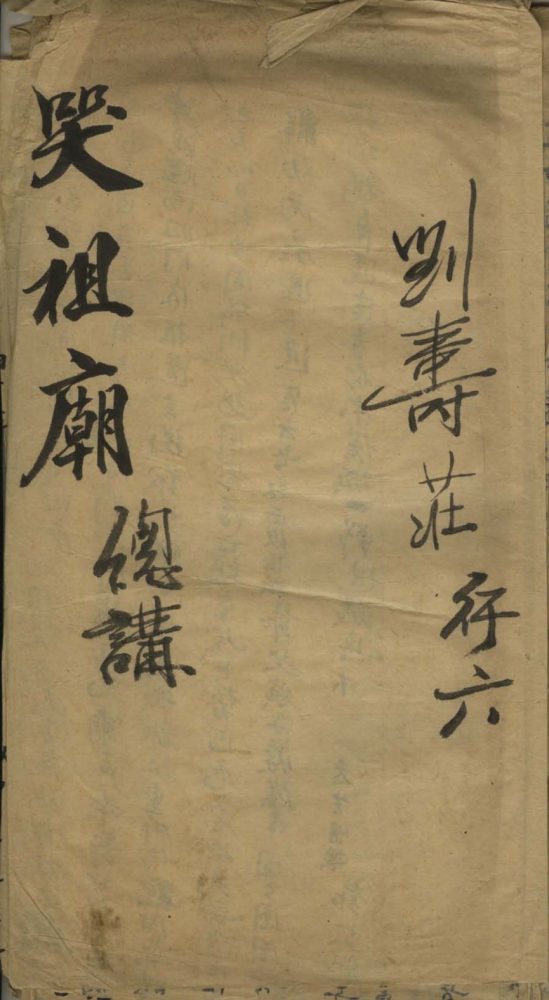 劉壽莊 行六
哭祖廟
總講